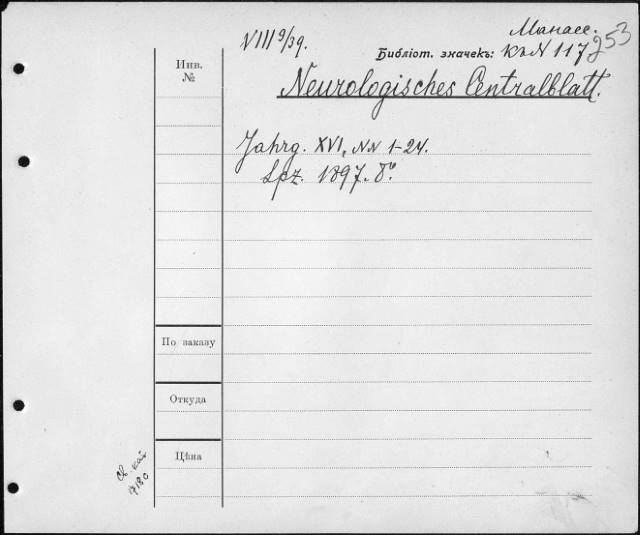 VIII 9/39.
Манасс.
Библіот. значекъ: къ N 117
253
Инв.
№
Neurologisches Centralblatt.
Jahrg. XVI, NN 1-24.
Lpz. 1897. 8º
По заказу
Откуда
Цѣна
9180